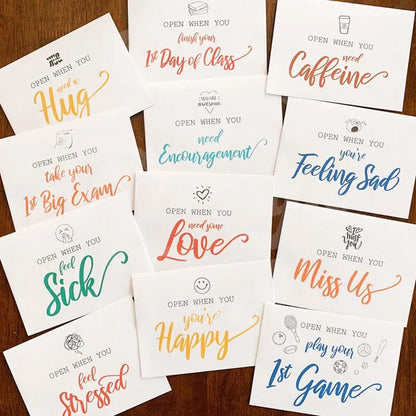 OPEN WHEN YOU
need a
Hug
OPEN WHEN YOU
finish your
1st Day of Class
OPEN WHEN YOU
need
Caffeine
OPEN WHEN YOU
take your
1st Big Exam
YOU ARE
AWESOME
OPEN WHEN YOU
need
Encouragement
OPEN WHEN YOU
you're
Feeling Sad
OPEN WHEN YOU
feel
Sick
OPEN WHEN YOU
need some
Love
miss
you
OPEN WHEN YOU
Miss Us
OPEN WHEN YOU
feel
Stressed
OPEN WHEN YOU
you're
Happy
OPEN WHEN YOU
play your
1st Game